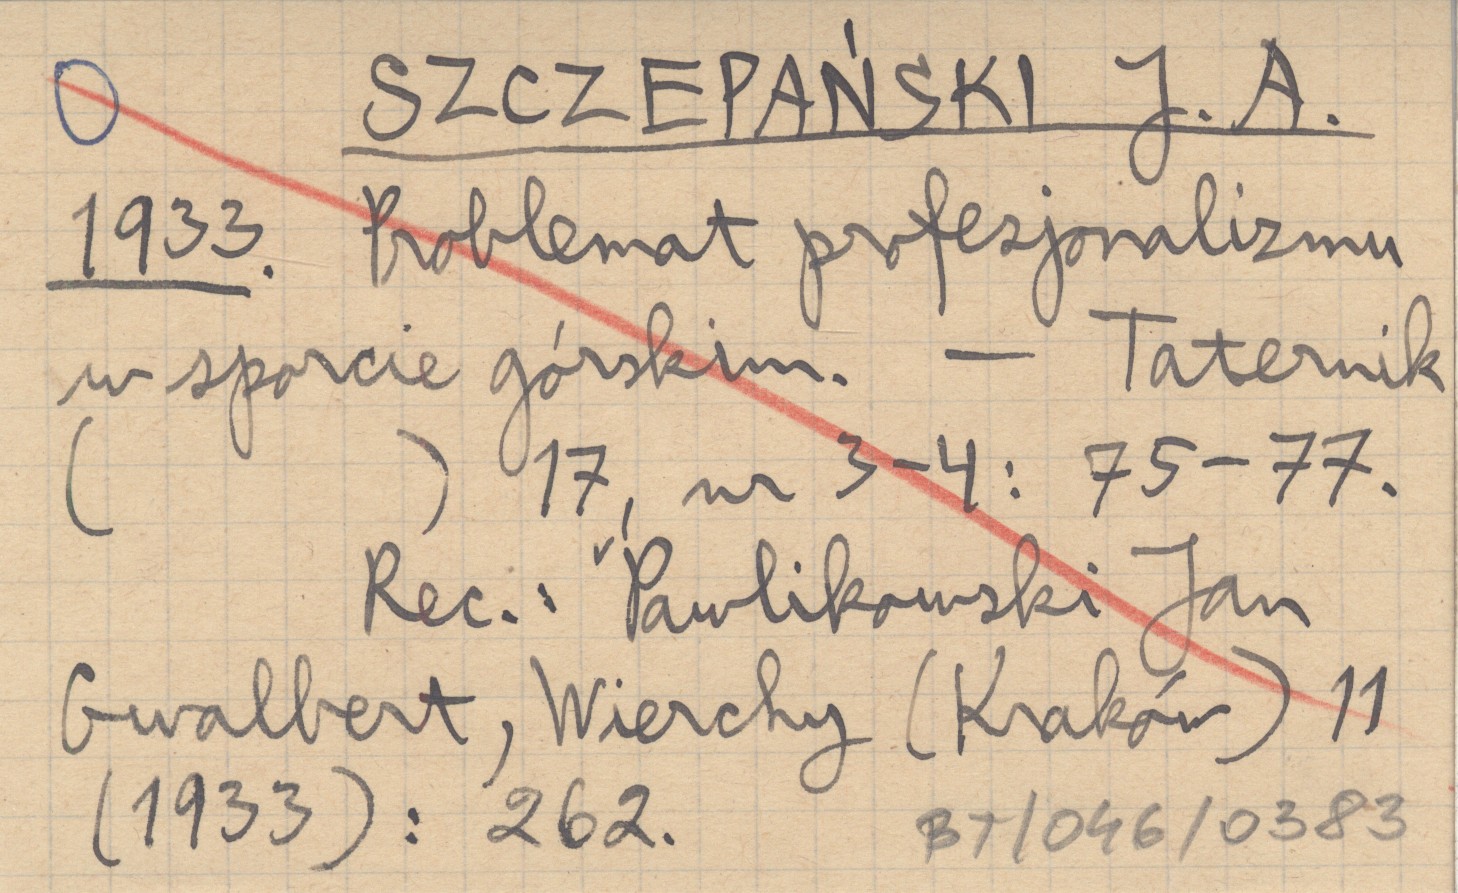 SZCZEPAŃSKI J. A.
1933. Problemat profesjonalizmu
w sporcie górskim. — Taternik
( ) 17, nr 3-4: 75-77.
Rec.: Pawlikowski Jan
Gwalbert, Wierchy (Kraków) 11
(1933): 262.
BT/046/0383